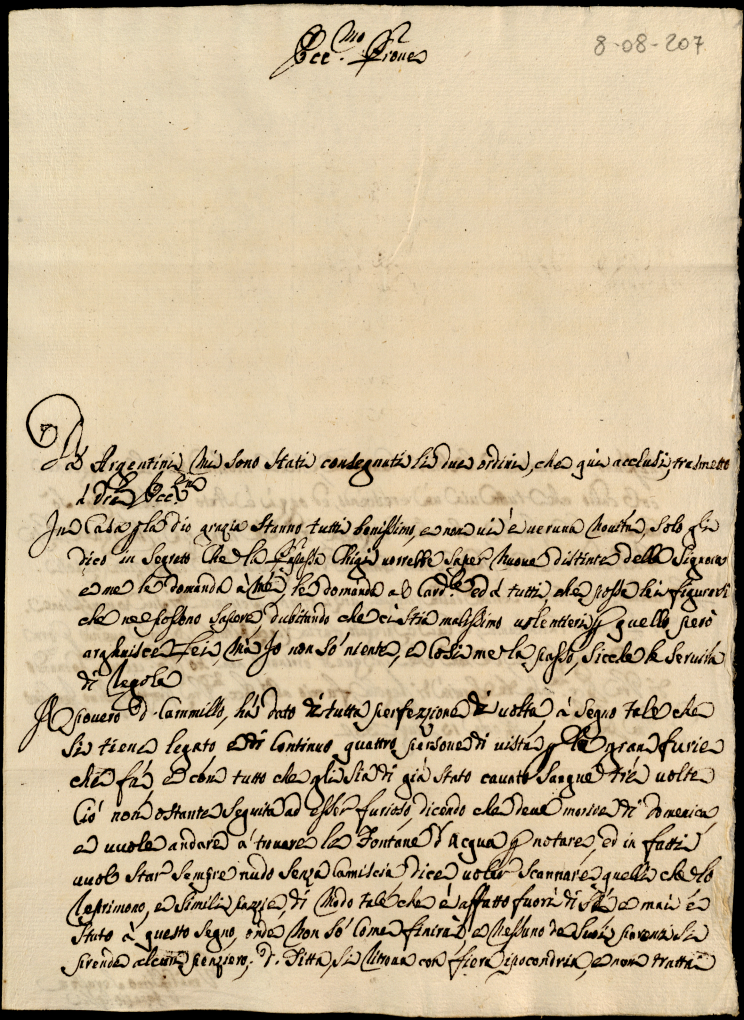 8-08-207
Ecc.mo Prone
Da Argentini mi sono stati consegnati li due ordini, che qui acclusi, trasmetto
à Ecc.
In Casa la dio grazia stanno tutti benissimo, e non vi è veruna Novità, solo gli
dico in segreto che la Chigi vorrebbe saper nuove distinte della Signora
e me le domanda à mé, le domanda a Card.le ed à tutti che possa lei figurarsi
che ne possono sapere, dubitando che ci stia malissimo volentieri, quello però
arguisce Lei, mà Io non so niente, e Così me la passo, sicche le servirà
di regola
Il povero D. Cammillo, hà dato di tutta perfezzione di volta, à segno tale che
si tiene legato e di continuo quattro persone di vista la gran furie
che fà, e con tutto che gli sia di già stato cavato sangue trè volte
Ciò non ostante seguita ad esser furioso, dicendo che deve morire di Domenica
e vuole andare à trovare le Fontane d'Acqua p notare, ed in fatti
vuole star sempre nudo senza Camiscia dice voler scannare quelli che lo
reprimono, e simili pazzie, di modo tale che è affatto fuori di sé e mai è
stato à questo segno, onde non sò come finirà e nessuno de suoi parenti si
prende alcun pensiero. D. Titta, si ritrova con fiera ipocondria, e non tratta